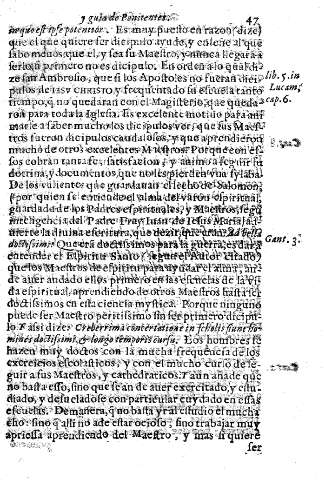 y guia de Penitentes. 47
in quo est ipse potentior. Es muy puesto en razon (dize)
que el que quiere ser dicipulo ayude, y enseñe al que
sabe menos que el, y sea su Maestro, y nunca llegará a
serlo si primero no es dicipulo. En orden a lo qual di-
ze san Ambrosio, que si los Apostoles no fueran dici-
pulos de IESV CHRISTO y frequentado su escuela tanto
tiempo, q no quedaran con el Magisterio, que queda-
ron para toda la Iglesia. Es excelente motiuo para
mi saber mucho los dicipulos ver, que sus Maes-
tros fueron dicipulos cuidadosos, y que aprendieron
mucho de otros excelentes Maestros. Porque con es-
so cobran tanta fe, satisfacion, y animo a seguir su
doctrina, y documentos, que no les pierden vna sylaba.
De los valientes que guardauan el lecho de Salomon,
por quien se entiende el alma del varon espiritual,
guardada de los Padres espirituales, y Maestros, segũ
inteligencia del Padre Fray Iuan de Iesus Maria,
aduierte la diuina escritura, que
doctissimos. Que era doctissimos para la guerra, es dar a
entender el Espiritu Santo (segun el Autor citado)
que los Maestros de espiritu para ayudar el alma, an
de auer andado ellos primero en las escuelas de la vi-
da espiritual, aprendiendo de otros Maestros hasta
doctissimos en esta ciencia mystica. Porque ninguno
puede ser Maestro peritissimo sin ser primero dicipu-
lo Y assi dize: Creberrima concertatione in scholis fiunt ho-
mines doctissimi, & longo temporis cursu. Los hombres se
hazen muy doctos con la mucha frequencia de los
exercicios escolasticos, y con el mucho curso de se-
guir a sus Maestros, y cathedraticos. Y aun añade que
no basta esso, sino que se an de auer exercitado, y estu-
diado, y desuelado se con particular cuydado en essas
escuelas. De manera, q no basta yr al estudio el mucha-
cho: sino q alli no a de estar ocioso, sino trabajar muy
apriessa aprendiendo del Maestro, y mas si quiere
ser
lib. 5. in
Lucam,
cap. 6.
Cant. 3.